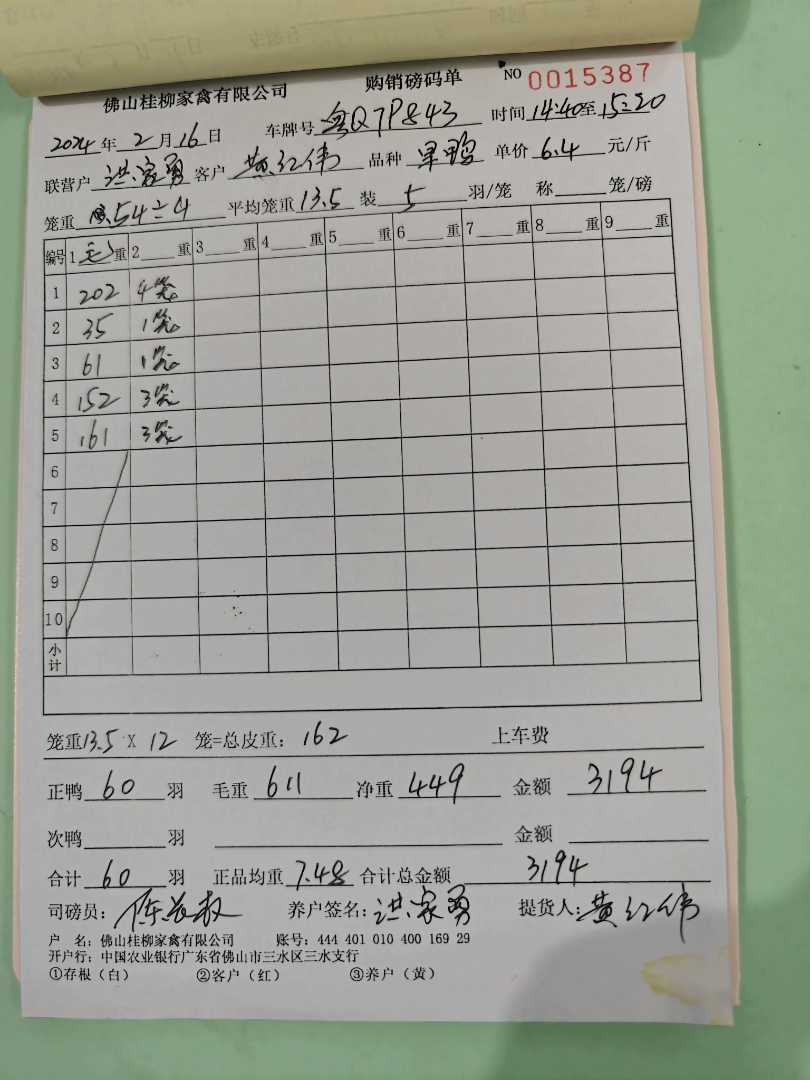 佛山桂柳家禽有限公司 购销磅码单 NO 0015387
2024年2月16日 车牌号 粤Q7P843 时间14:40至15:20
联营户 洪家勇 客户 黄红伟 品种 单价 6.4 元/斤
笼重 54÷4 平均笼重13.5 装 5 羽/笼 称 笼/磅
编号 1 毛 重 2 重 3 重 4 重 5 重 6 重 7 重 8 重 9 重
1 202 4笼
2 35 1笼
3 61 1笼
4 152 3笼
5 161 3笼
6
7
8
9
10
小计
笼重13.5 X 12 笼=总皮重: 162 上车费
正鸭 60 羽 毛重 611 净重 449 金额 3194
次鸭 羽 金额
合计 60 羽 正品均重 7.48 合计总金额 3194
司磅员: 养户签名: 洪家勇 提货人: 黄红伟
户 名: 佛山桂柳家禽有限公司 账号: 444 401 010 400 169 29
开户行: 中国农业银行广东省佛山市三水区三水支行
①存根(白) ②客户(红) ③养户(黄)